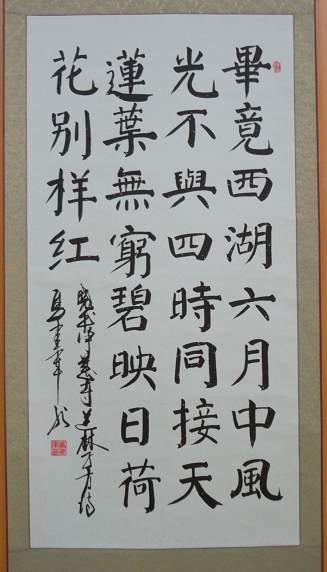 畢竟西湖六月中風
光不與四時同接天
蓮葉無窮碧映日荷
花别样红
晓出净慈寺送林子方诗